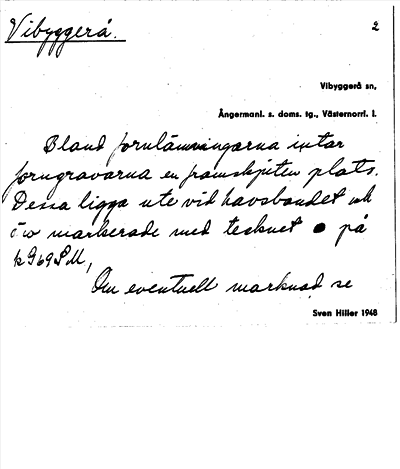 Vibyggerå. 2
Vibyggerå sn,
Ångermanl. s. doms. tg., Västernorrl. l.
Bland fornlämningarna intar
forngravarna en framskjuten plats.
Dessa ligga ute vid havsbandet och
äro markerade med tecknet ● på
k969SM,
Om eventuell marknad se
Sven Hiller 1948